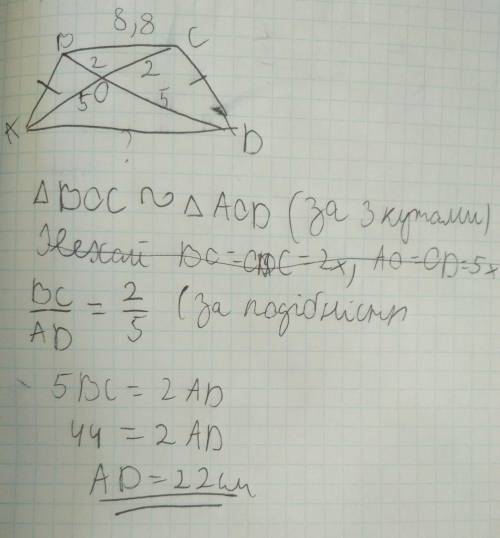 8,8
B C
2 2
O
5 5
A D
?
△BOC ~ △AOD (за 3 кутами)
Нехай BO = OC = 2x, AO=OD=5x
BC/AD = 2/5 (за подібністю
5BC = 2AD
44 = 2AD
AD = 22см